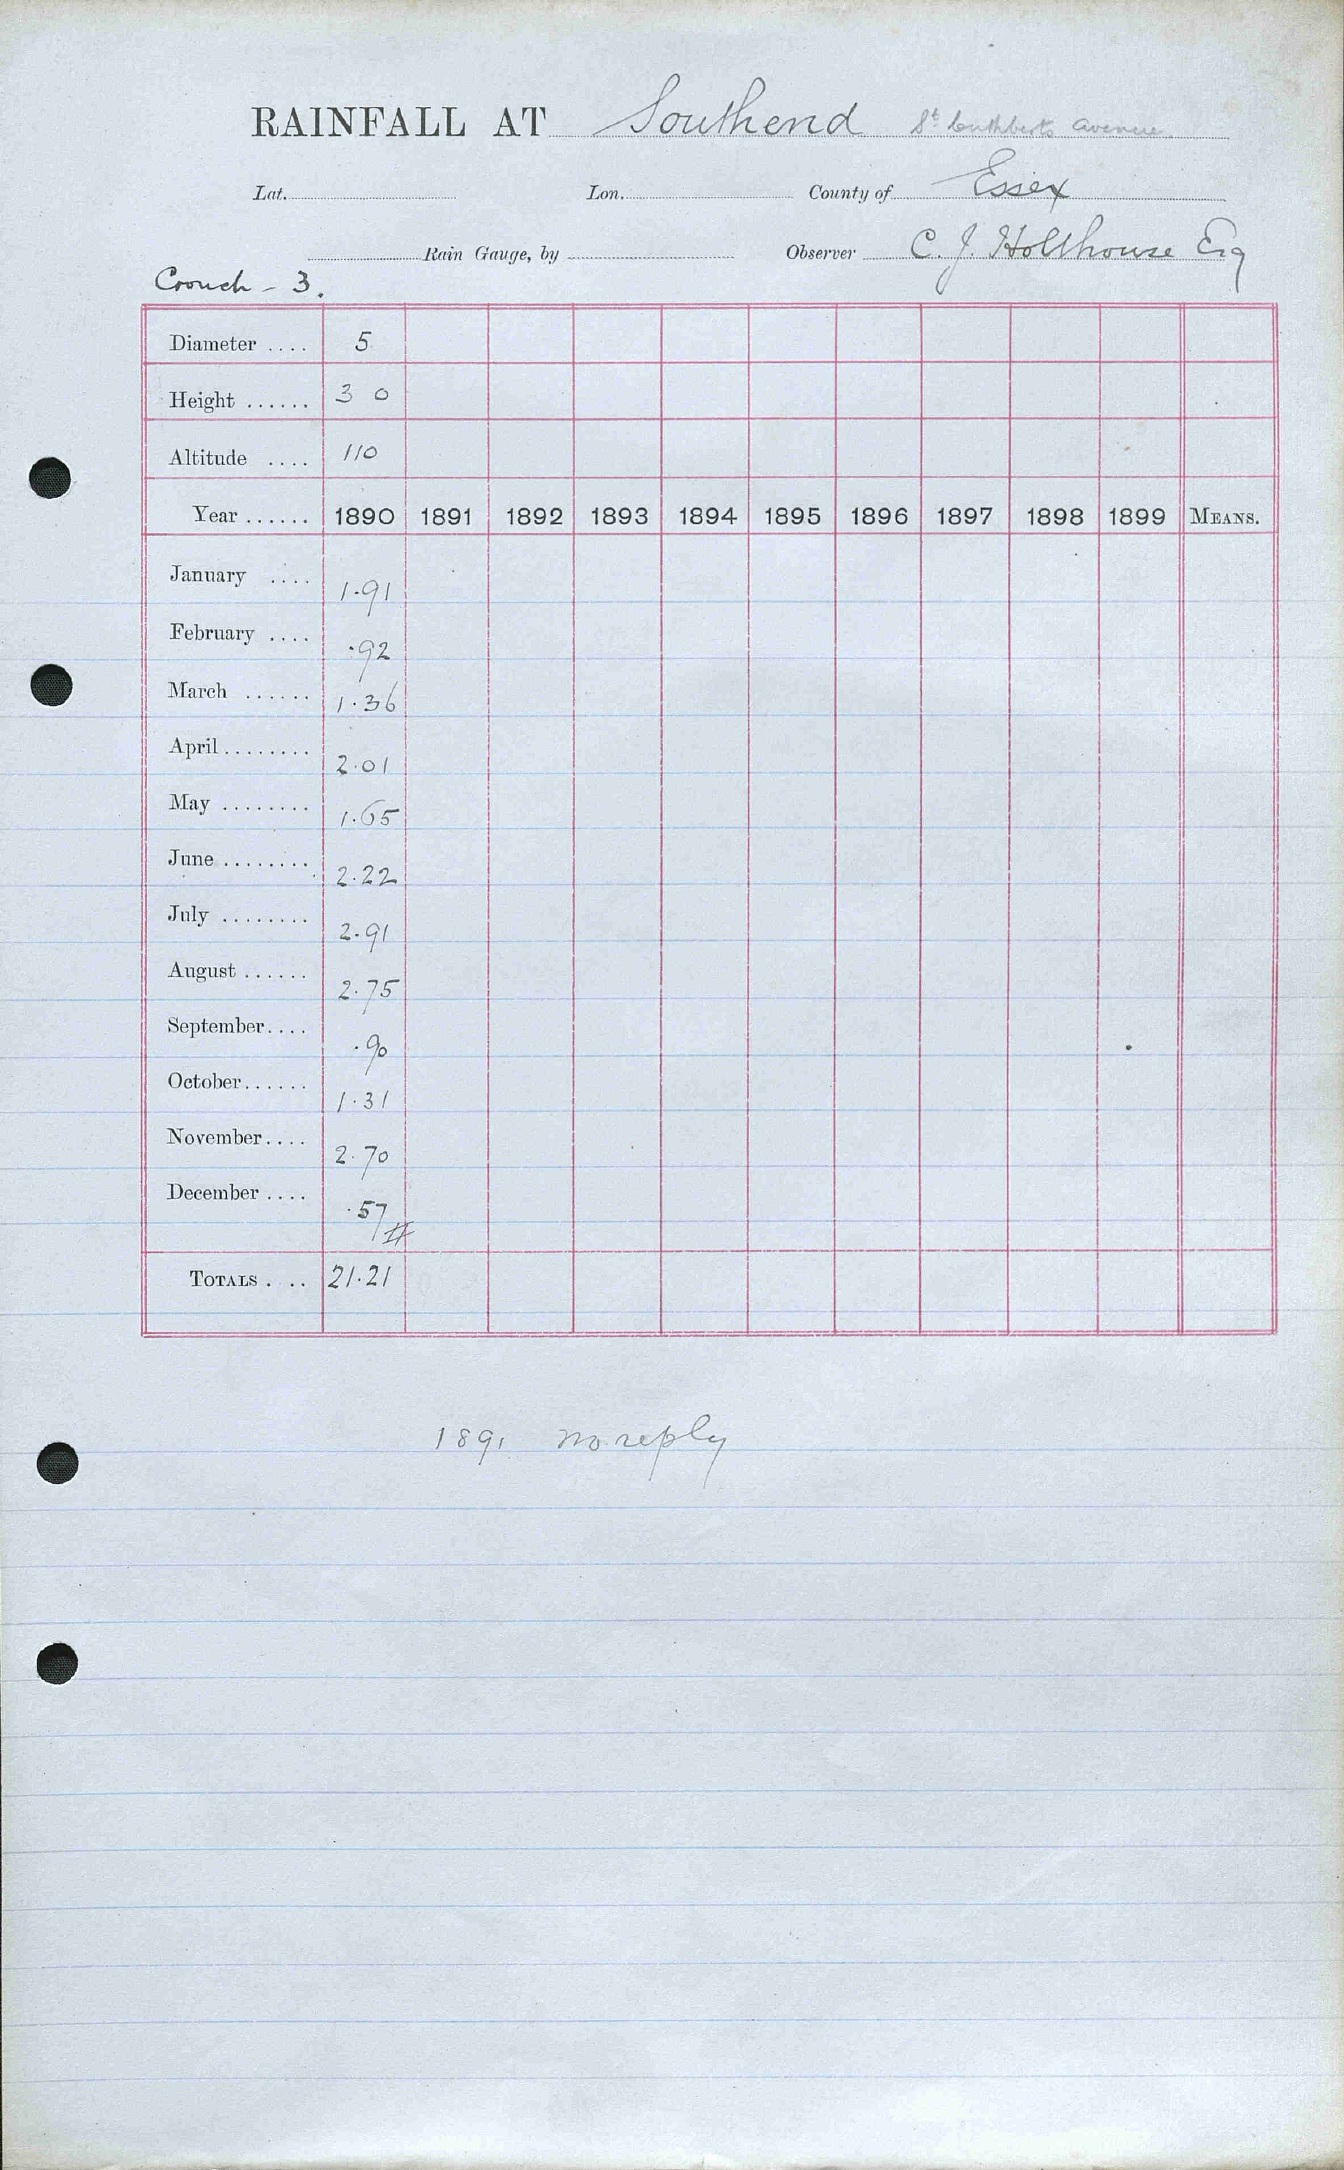 RAINFALL AT Southend St. Cuthberts Avenue
Lat. Lon. County of Essex
Rain Gauge, by Observer C. J. Holthouse Esq
Crouch - 3.
Diameter .... 5
Height ...... 3 0
Altitude .... 110
Year ...... 1890 1891 1892 1893 1894 1895 1896 1897 1898 1899 MEANS.
January .... 1.91
February .... .92
March ...... 1.36
April ........ 2.01
May ........ 1.65
June ........ 2.22
July ........ 2.91
August ...... 2.75
September .... .90
October ...... 1.31
November .... 2.70
December .... .57
TOTALS . .. 21.21
1891 no reply